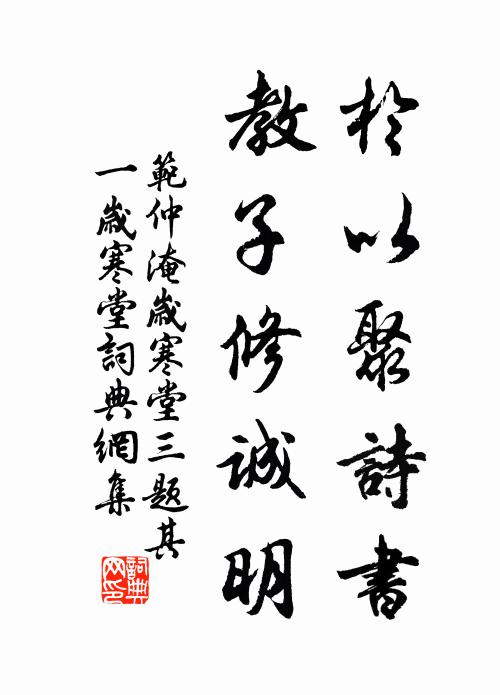 於以聚詩書
教子修誠明
範仲淹歲寒堂三題其
一歲寒堂詞典網集
詞典
网印